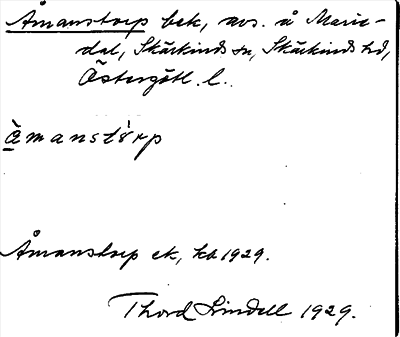 Åmanstorp bek, avs. å Marie-
dal, Skärkinds sn, Skärkinds hd,
Östergötl. l.
å̀manstórp
Åmanstorp ek, kb 1929.
Thord Lindell 1929.